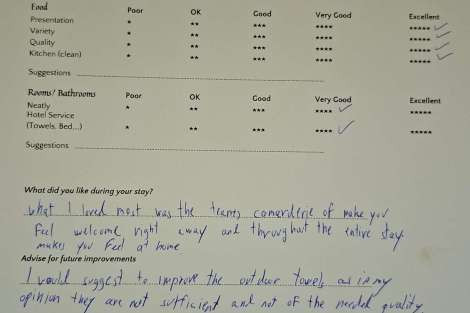 Food Poor OK Good Very Good Excellent
Presentation * ** *** **** ***** ✓
Variety * ** *** **** ***** ✓
Quality * ** *** **** ***** ✓
Kitchen (clean) * ** *** **** ***** ✓
Suggestions
Rooms/ Bathrooms Poor OK Good Very Good Excellent
Neatly * ** *** **** ✓ *****
Hotel Service
(Towels, Bed...) * ** *** **** ✓ *****
Suggestions
What did you like during your stay?
what I loved most was the teams camarderie of make you
feel welcome right away and throughout the entire stay.
makes you feel at home
Advise for future improvements
I would suggest to improve the outdoor towels as in my
opinion they are not sufficient and not of the needed quality